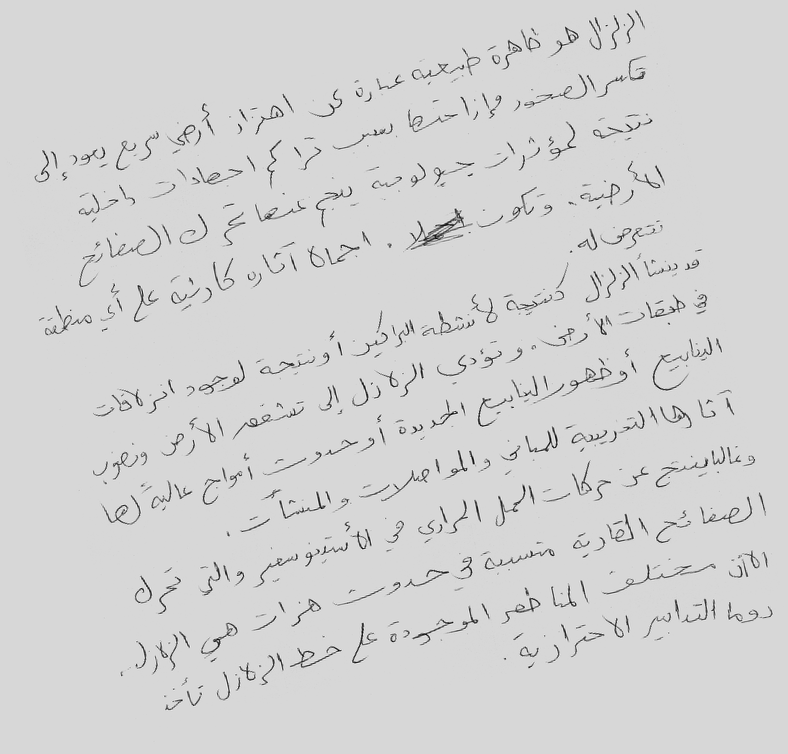 الزلزال هو ظاهرة طبيعية عبارة عن اهتزاز أرضي سريع يعود إلى
تكسر الصخور وإزاحتها بسبب تراكم اجهادات داخلية
نتيجة لمؤثرات جيولوجية ينجم عنها تحرك الصفائح
الأرضية. وتكون . اجمالا آثاره كارثية على أي منطقة
تتعرض له.
قد ينشأ الزلزال كنتيجة لأنشطة البراكين أو نتيجة لوجود انزلاقات
في طبقات الأرض. وتؤدي الزلازل إلى تشقق الأرض ونضوب
الينابيع أو ظهور الينابيع الجديدة أو حدوث أمواج عالية لها
آثارها التخريبية للمباني والمواصلات والمنشآت.
وغالبا ينتج عن حركات الحمل الحراري في الأستينوسفير والتي تحرك
الصفائح القارية متسببة في حدوث هزات هي الزلازل.
الآن مختلف المناطق الموجودة على خط الزلازل تأخذ
دوما التدابير الاحترازية.